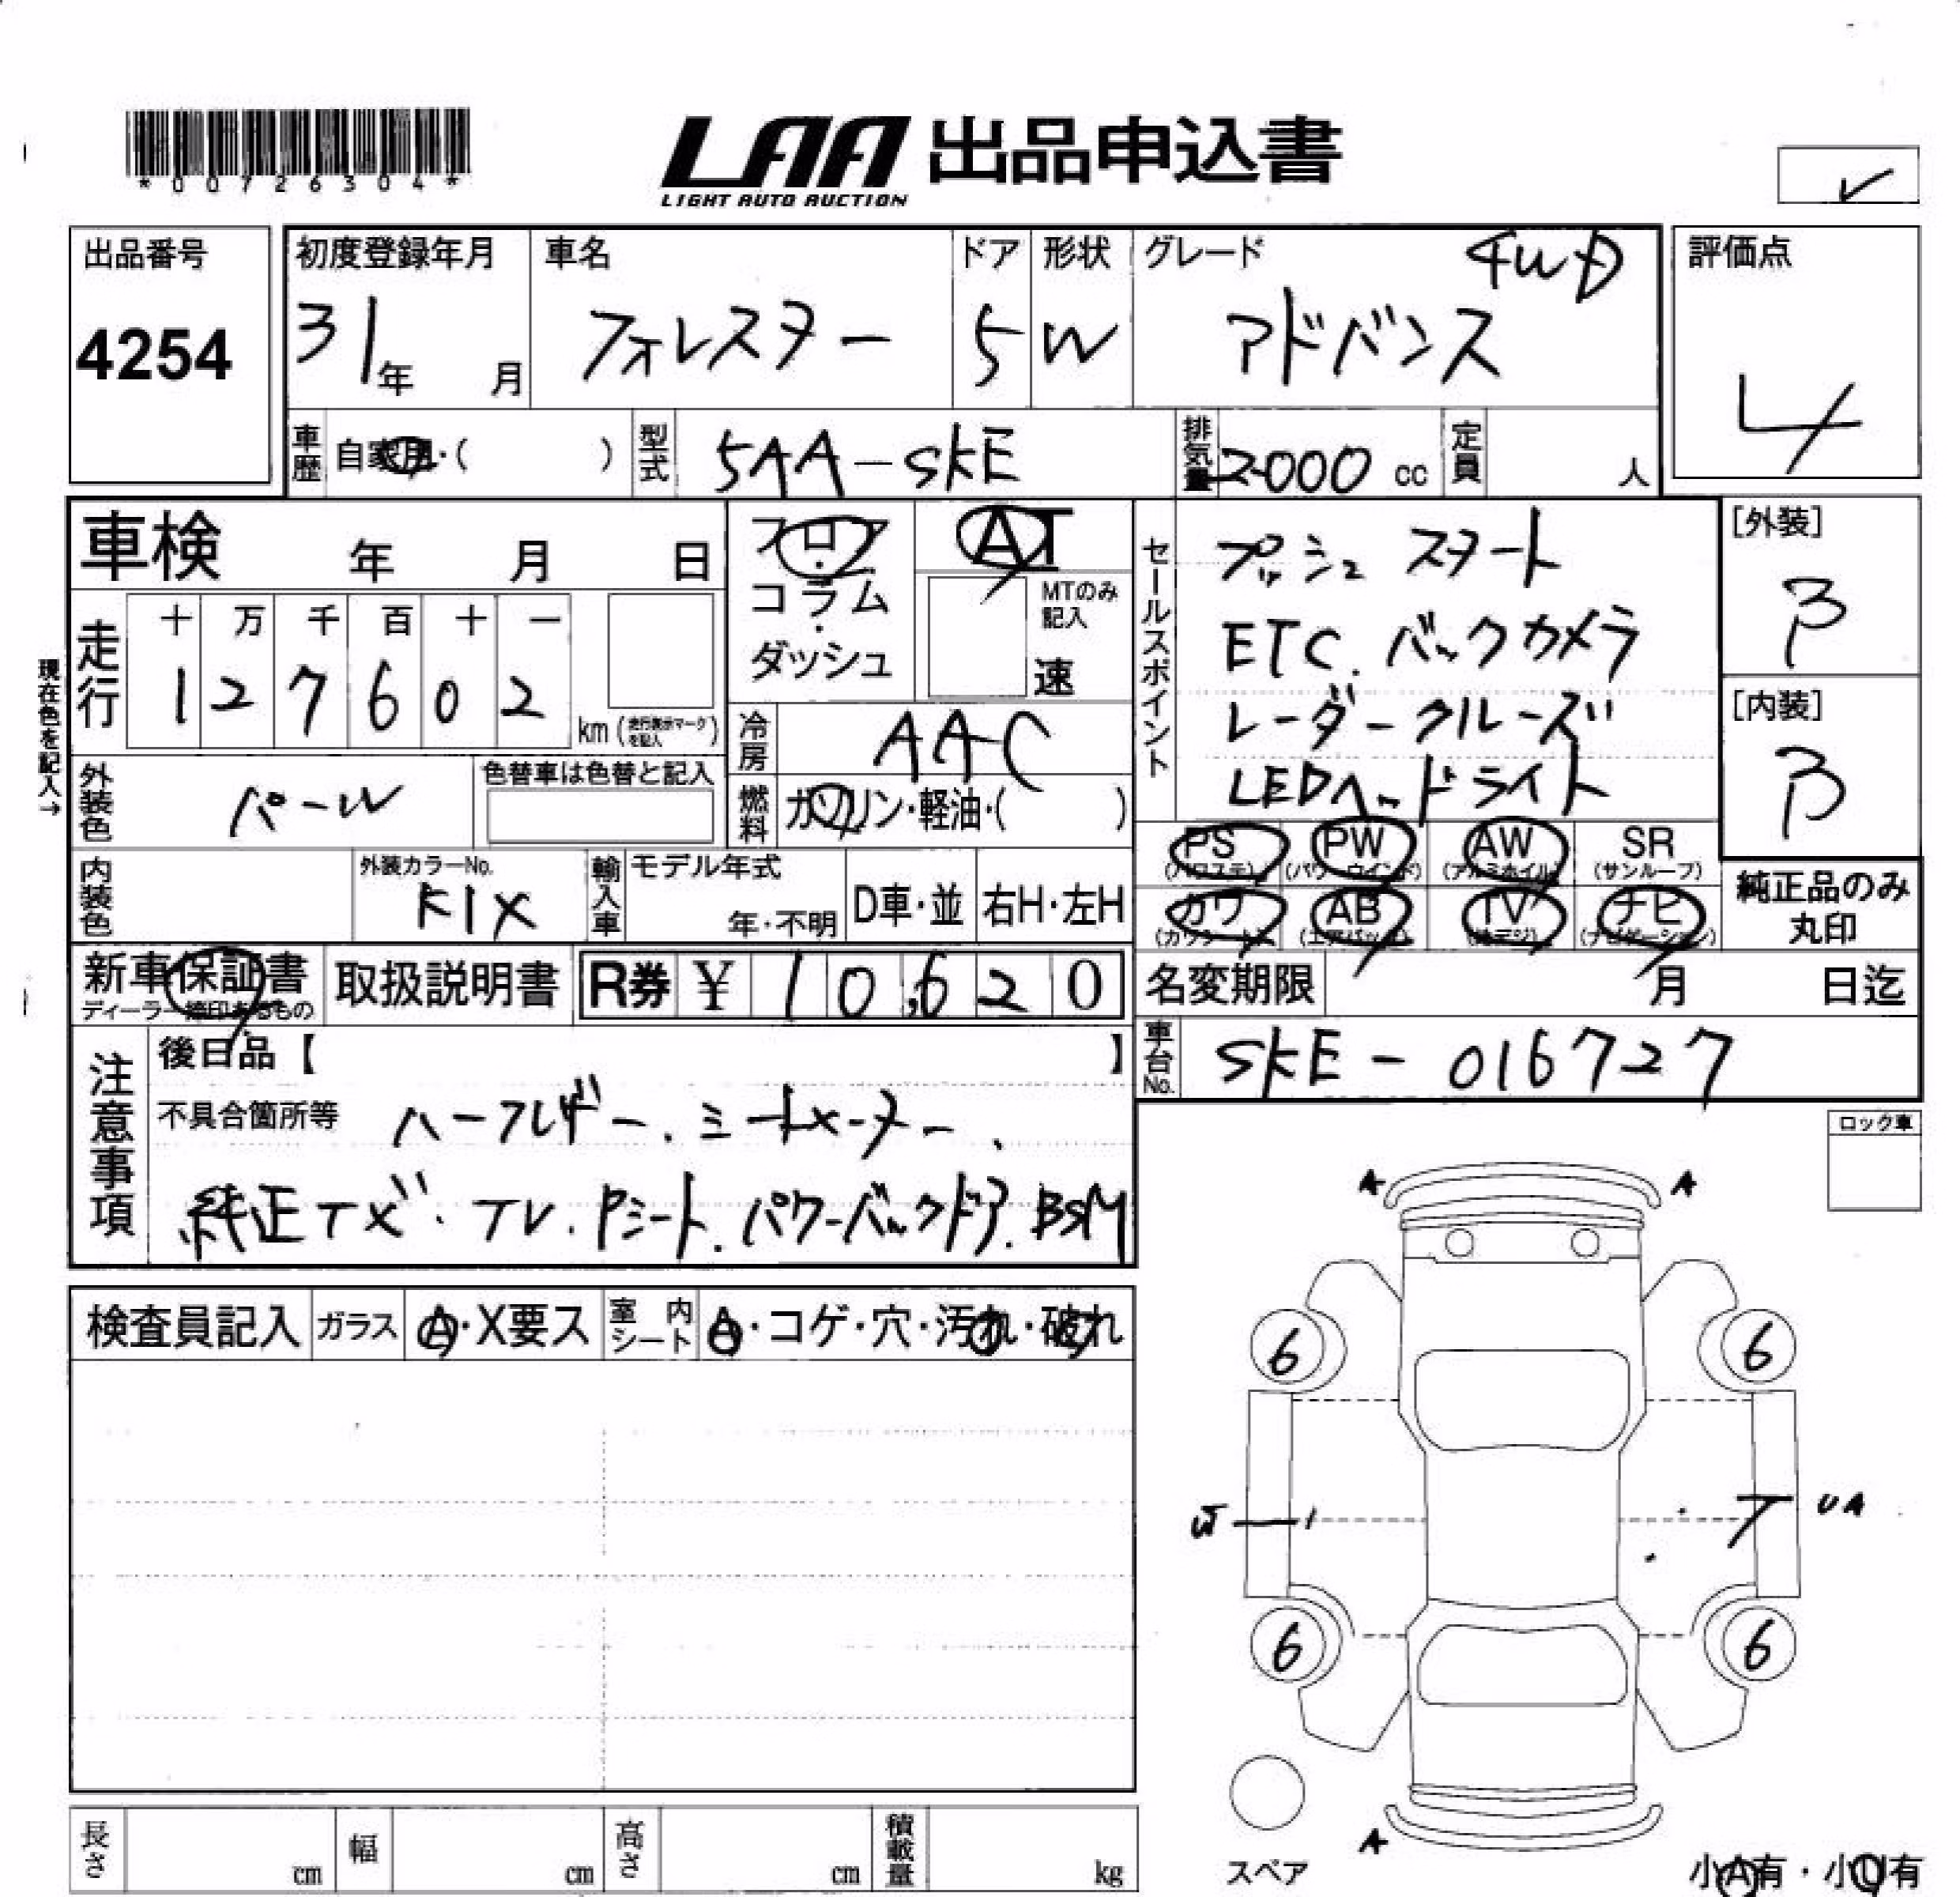 *00726304*
LAA 出品申込書
LIGHT AUTO AUCTION
出品番号
4254
初度登録年月
31年 月
車名
フォレスター
ドア
5
形状
W
グレード
4WD
アドバンス
評価点
4
車歴
自家用・( )
型式
5AA-SKE
排気量
2000 cc
定員
人
車検 年 月 日
フロア・コラム・ダッシュ
AT
MTのみ記入
速
セールスポイント
プッシュスタート
ETC. バックカメラ
レーダークルーズ
LEDヘッドライト
[外装]
B
[内装]
B
現在色を記入→
走行
十 万 千 百 十 一
1 2 7 6 0 2
km (走行表示マークを記入)
冷房
AAC
外装色
パール
色替車は色替と記入
燃料
ガソリン・軽油・( )
PS PW AW SR
(パワステ) (パワーウインド) (アルミホイル) (サンルーフ)
カワ AB TV ナビ
(カワシート) (エアバッグ) (地デジ) (ナビゲーション)
純正品のみ
丸印
内装色
外装カラーNo.
K1X
輸入車
モデル年式
年・不明
D車・並
右H・左H
新車保証書
ディーラー捺印あるもの
取扱説明書
R券 ¥ 10,620
名変期限 月 日迄
車台No.
SKE-016727
注意事項
後日品【 】
不具合箇所等
ハーフレザー、シートメーター、
純正ナビ・TV. Pシート. パワーバックドア. BSM
ロック車
A A
6 6
W UA
6 6
A
スペア
小A有・小U有
検査員記入
ガラス
A・X要ス
室内シート
A・コゲ・穴・汚れ・破れ
長さ cm
幅 cm
高さ cm
積載量 kg